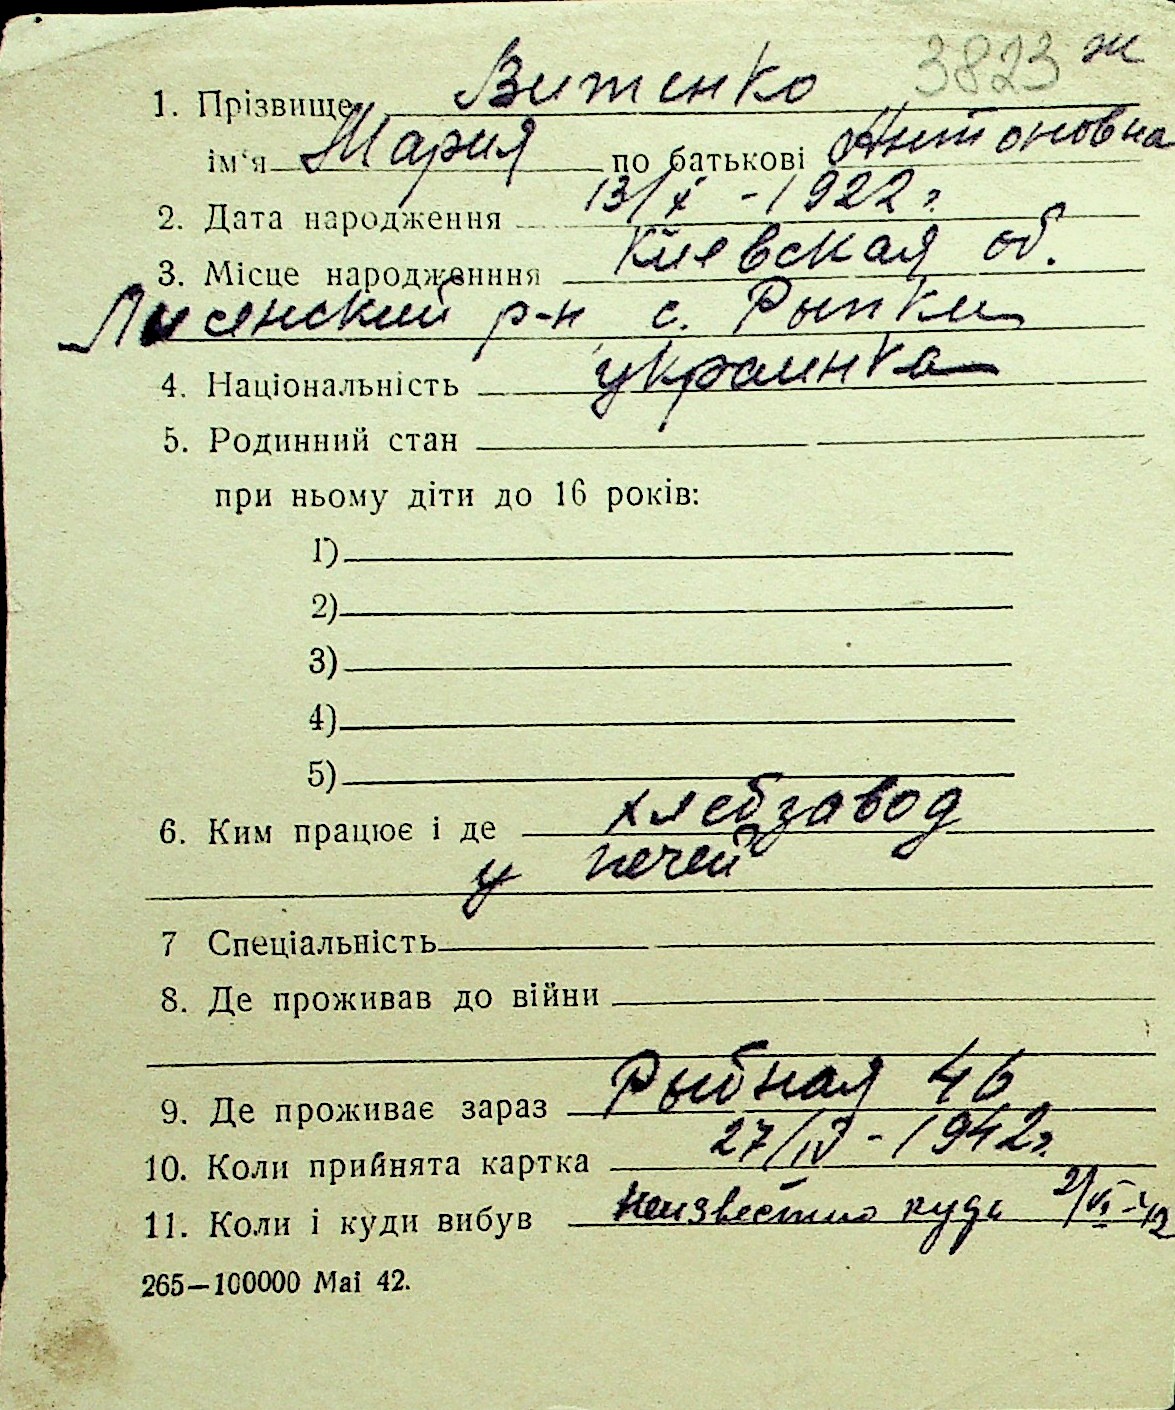 3823 ж
1. Прізвище Витенко
ім'я Мария по батькові Антоновна
2. Дата народження 13/X - 1922 г.
3. Місце народженння Киевская об.
Лисянский р-н с. Рыпки
4. Національність украинка
5. Родинний стан
при ньому діти до 16 років:
1)
2)
3)
4)
5)
6. Ким працює і де хлебзавод
у печей
7 Спеціальність
8. Де проживав до війни
9. Де проживає зараз Рыбная 46
10. Коли прийнята картка 27/IV - 1942 г.
11. Коли і куди вибув неизвестно куда 2/VI-42
265—100000 Mai 42.